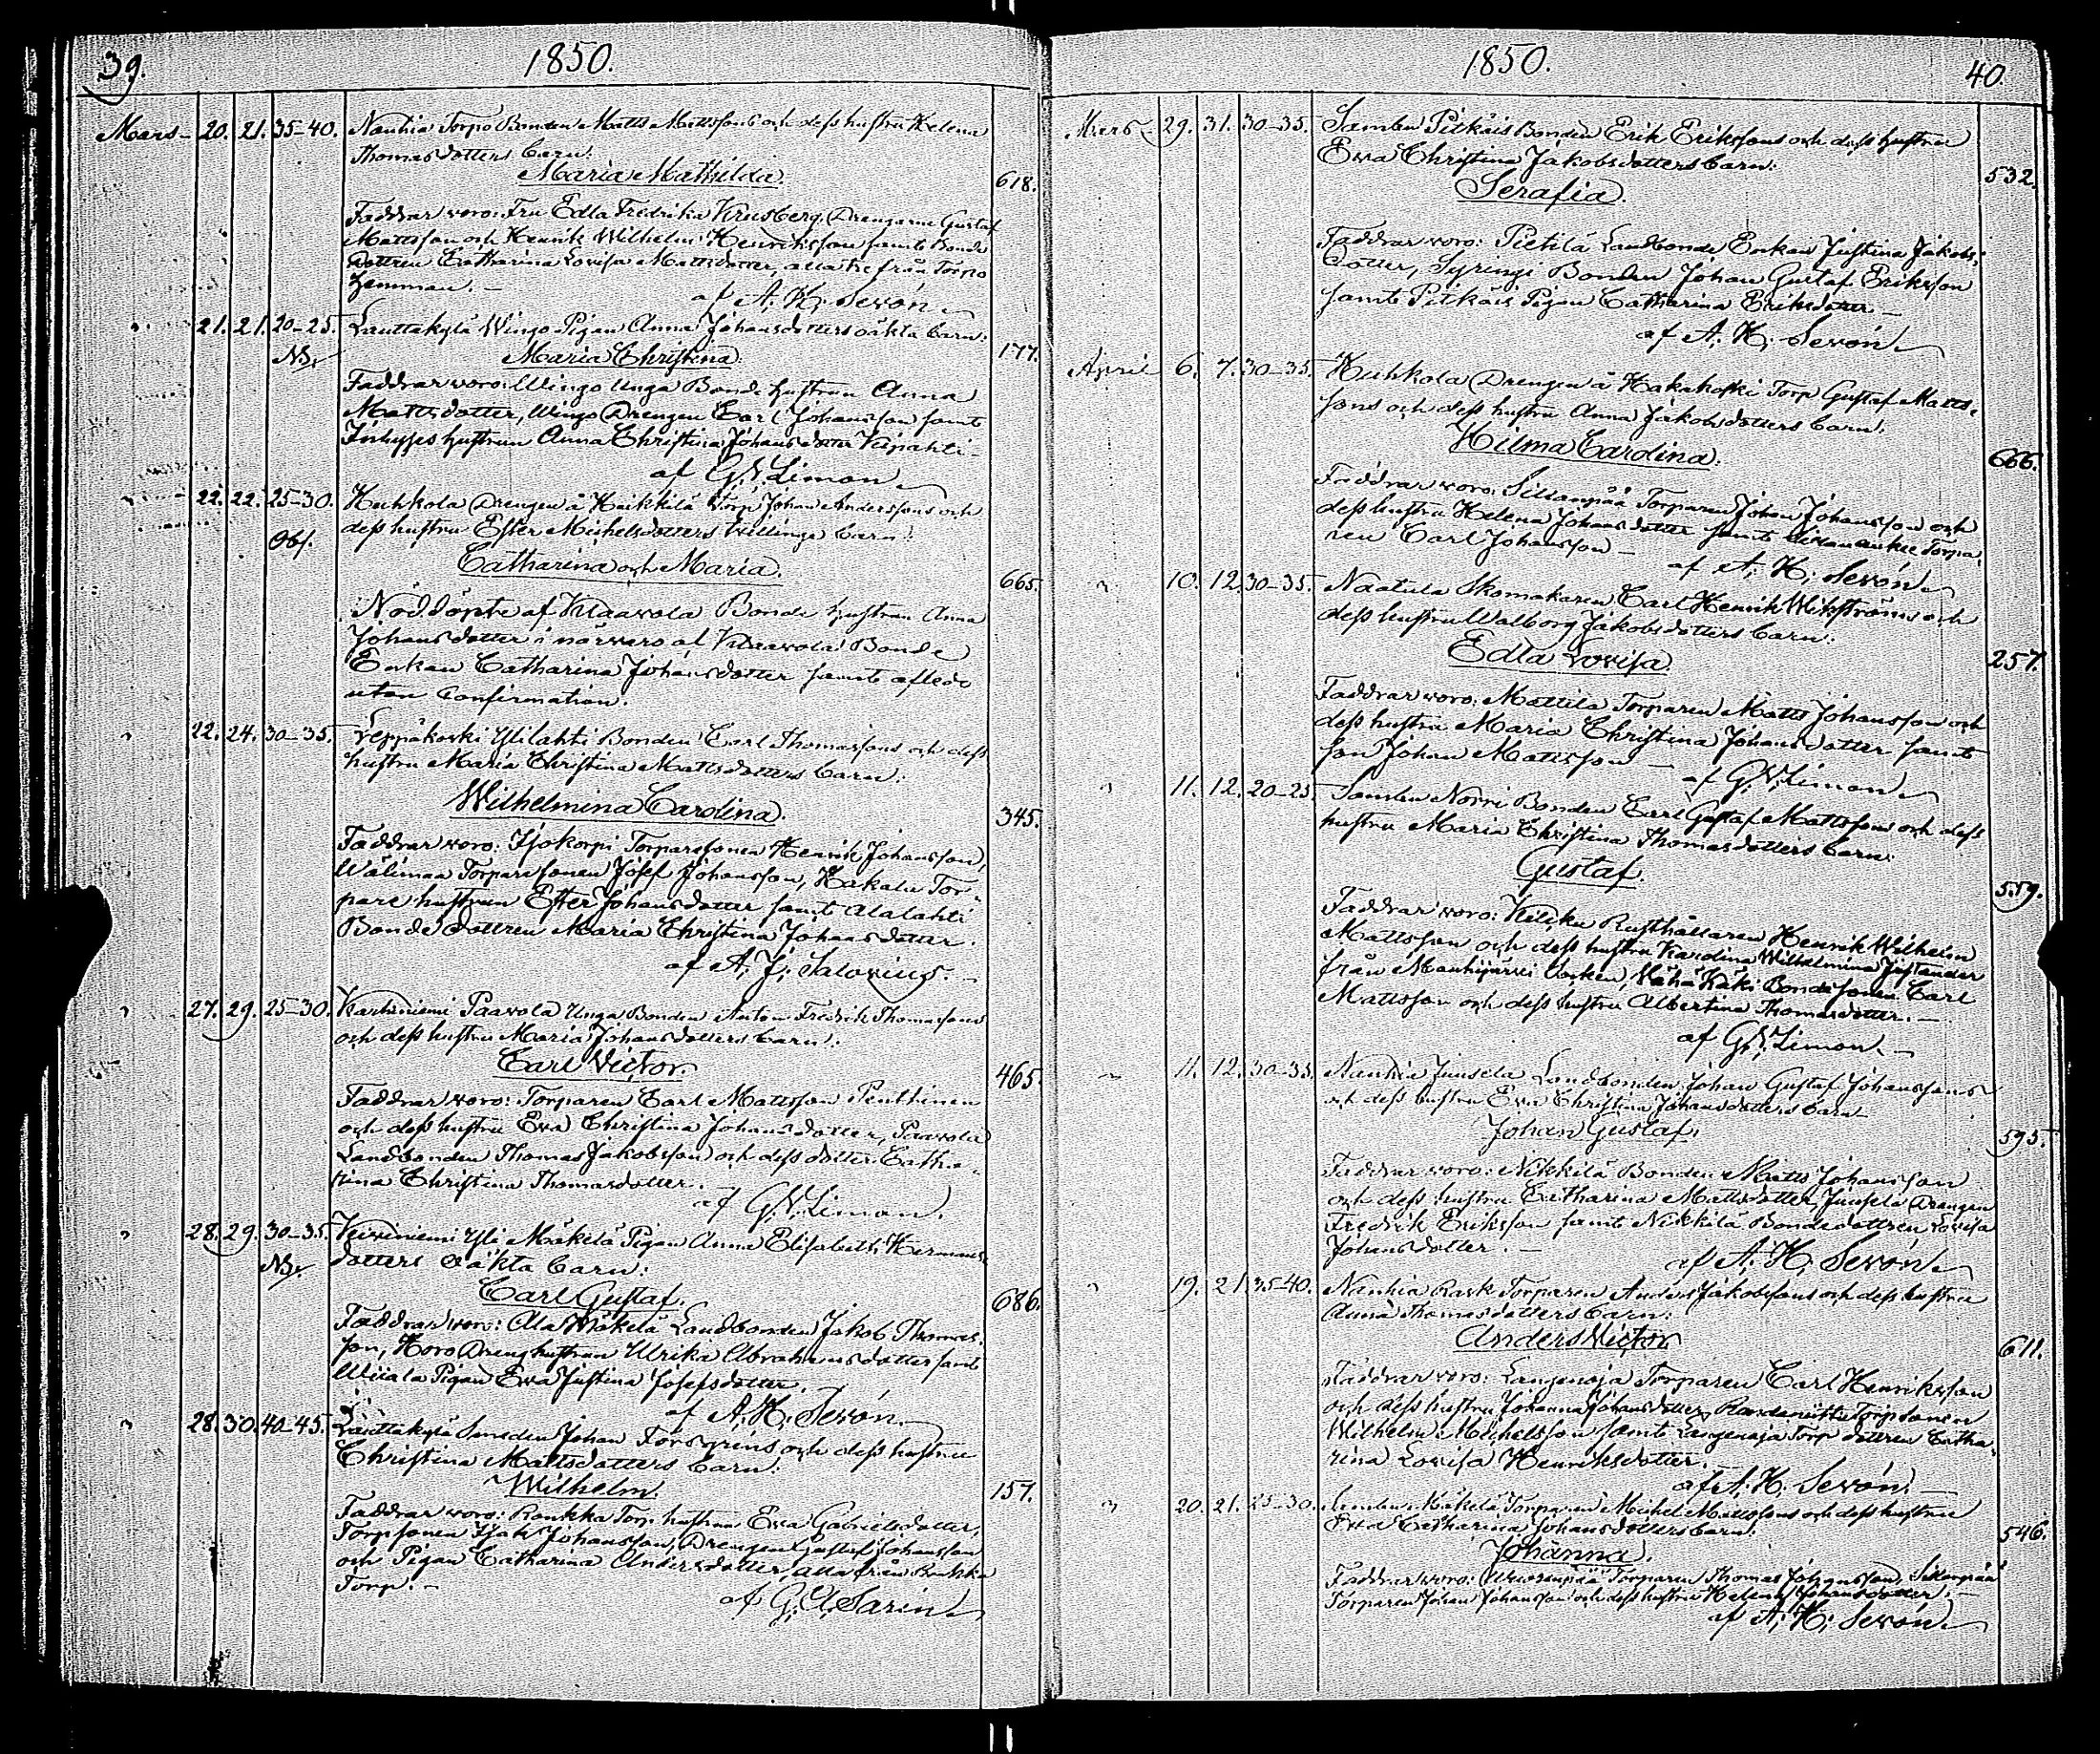 39. 1850.
Mars – 20. 21. 35–40. Nanhia Torpo Bonden Matts Mattssons och dess hustru Helena
Thomasdotters barn:
Maria Mathilda. 618.
Faddrar voro: Fru Edla Fredrika Krusberg, Drengarne Gustaf
Mattsson och Henrik Wilhelm Henriksson samt Bonde
dottren Catharina Lovisa Mattsdotter, alla tre från Torpo
hemman. –
af A. H. Sevón
" 21. 21. 20–25. Lauttakylä Wingo Pigan Anna Johansdotters oäkta barn:
NB. Maria Christina. 177.
Faddrar voro: Wingo unga Bonde hustrun Anna
Mattsdotter, Wingo Drengen Carl Johansson samt
Inhyses hustrun Anna Christina Johansdotter
af G. V. Limon
" 22. 22. 25–30. Huhkola Drengen å Heikkilä Torp Johan Anderssons och
dess hustru Ester Michelsdotters tvillinge barn:
Obs.
Catharina och Maria. 665.
Nöddöpte af Klaavola Bonde hustrun Anna
Johansdotter i närvaro af Klaavola Bonde
Enkan Catharina Johansdotter samt afledo
utan Confirmation.
" 22. 24. 30–35. Leppäkoski Ylilahti Bonden Carl Thomassons och dess
hustru Maria Christina Mattsdotters barn:
Wilhelmina Carolina. 345.
Faddrar voro: Isokorpi Torparesonen Henrik Johansson,
Wälimaa Torparesonen Josef Johansson, Hakala Tor-
pare hustrun Ester Johansdotter samt Alalahti
Bonde dottren Maria Christina Johansdotter.
af A. J. Salovius. –
" 27. 29. 25–30. Karhiniemi Paavola Unga Bonden Anton Fredrik Thomassons
och dess hustru Maria Johansdotters barn:
Carl Victor. 465.
Faddrar voro: Torparen Carl Mattsson Penttinen
och dess hustru Eva Christina Johansdotter, Paavola
Landbonden Thomas Jakobsson och dess dotter Catha-
rina Christina Thomasdotter. –
af G. V. Limon.
" 28. 29. 30–35. Keiviniemi Yli Mäkelä Pigan Anna Elisabeth Hermans-
NB. dotters oäkta barn:
Carl Gustaf. 686.
Faddrar voro: Ala Mäkelä Landbonden Jakob Thomas-
son, Horo Dreng hustrun Ulrika Abrahamsdotter samt
Wiiala Pigan Eva Justina Josefsdotter. –
af A. H. Sevón.
" 28. 30. 40–45. Lauttakylä Smeden Johan Forsgrens och dess hustru
Christina Mattsdotters barn:
Wilhelm. 157.
Faddrar voro: Ronkka Torp hustrun Eva Gabrielsdotter,
Torpsonen Isak Johansson, Drengen Gustaf Johansson
och Pigan Catharina Andersdotter, alla från Ronkka
Torp. –
af G. A. Sarin
1850. 40
Mars – 29. 31. 30–35. Sambu Pitkäis Bonden Erik Erikssons och dess hustru
Eva Christina Jakobsdotters barn:
Serafia. 532.
Faddrar voro: Pietilä Landbonde Enkan Justina Jakobs-
dotter, Syringi Bonden Johan Gustaf Eriksson
samt Pitkäis Pigan Catharina Eriksdotter –
af A. H. Sevón
April 6. 7. 30–35. Huhkola Drengen å Hakakoski Torp Gustaf Matts-
sons och dess hustru Anna Jakobsdotters barn:
Hilma Carolina. 666.
Faddrar voro: Sillanpää Torparen Johan Johansson och
dess hustru Helena Johansdotter samt Torpa-
ren Carl Johansson –
af A. H. Sevón
" 10. 12. 30–35. Naatula Skomakaren Carl Henrik Wikströms och
dess hustru Walborg Jakobsdotters barn:
Edla Lovisa 257.
Faddrar voro: Mattila Torparen Matts Johansson och
dess hustru Maria Christina Johansdotter samt
son Johan Mattsson –
af G. V. Limon
" 11. 12. 20–25. Sambu Norri Bonden Carl Gustaf Mattssons och dess
hustru Maria Christina Thomasdotters barn:
Gustaf. 559.
Faddrar voro: Kiliku Rusthållaren Henrik Wilhelm
Mattsson och dess hustru Karolina Wilhelmina Juslander
från Mouhijärvi Socken, Vähä Käki Bondesonen Carl
Mattsson och dess hustru Albertina Thomasdotter. –
af G. V. Limon. –
" 11. 12. 30–35. Nanhia Junsela Landbonden Johan Gustaf Johanssons
och dess hustru Eva Christina Johansdotters barn
Johan Gustaf. 595.
Faddrar voro: Nikkilä Bonden Matts Johansson
och dess hustru Catharina Mattsdotter, Junsela Drengen
Fredrik Eriksson samt Nikkilä Bondedottren Lovisa
Johansdotter. –
af A. H. Sevón
" 19. 21. 35–40. Nanhia Rask Torparen Anders Jakobssons och dess hustru
Anna Thomasdotters barn:
Anders Victor 611.
Faddrar voro: Langenoja Torparen Carl Henriksson
och dess hustru Johanna Johansdotter, Torpsonen
Wilhelm Michelsson samt Langenoja Torp dottren Catha-
rina Lovisa Henriksdotter. –
af A. H. Sevón. –
" 20. 21. 25–30. Sambu Mäkelä Torparen Michel Mattssons och dess hustru
Eva Catharina Johansdotters barn: 546.
Johanna.
Faddrar voro: Torparen Thomas Johansson, Sillanpää
Torparen Johan Johansson och dess hustru Helena Johansdotter. –
af A. H. Sevón